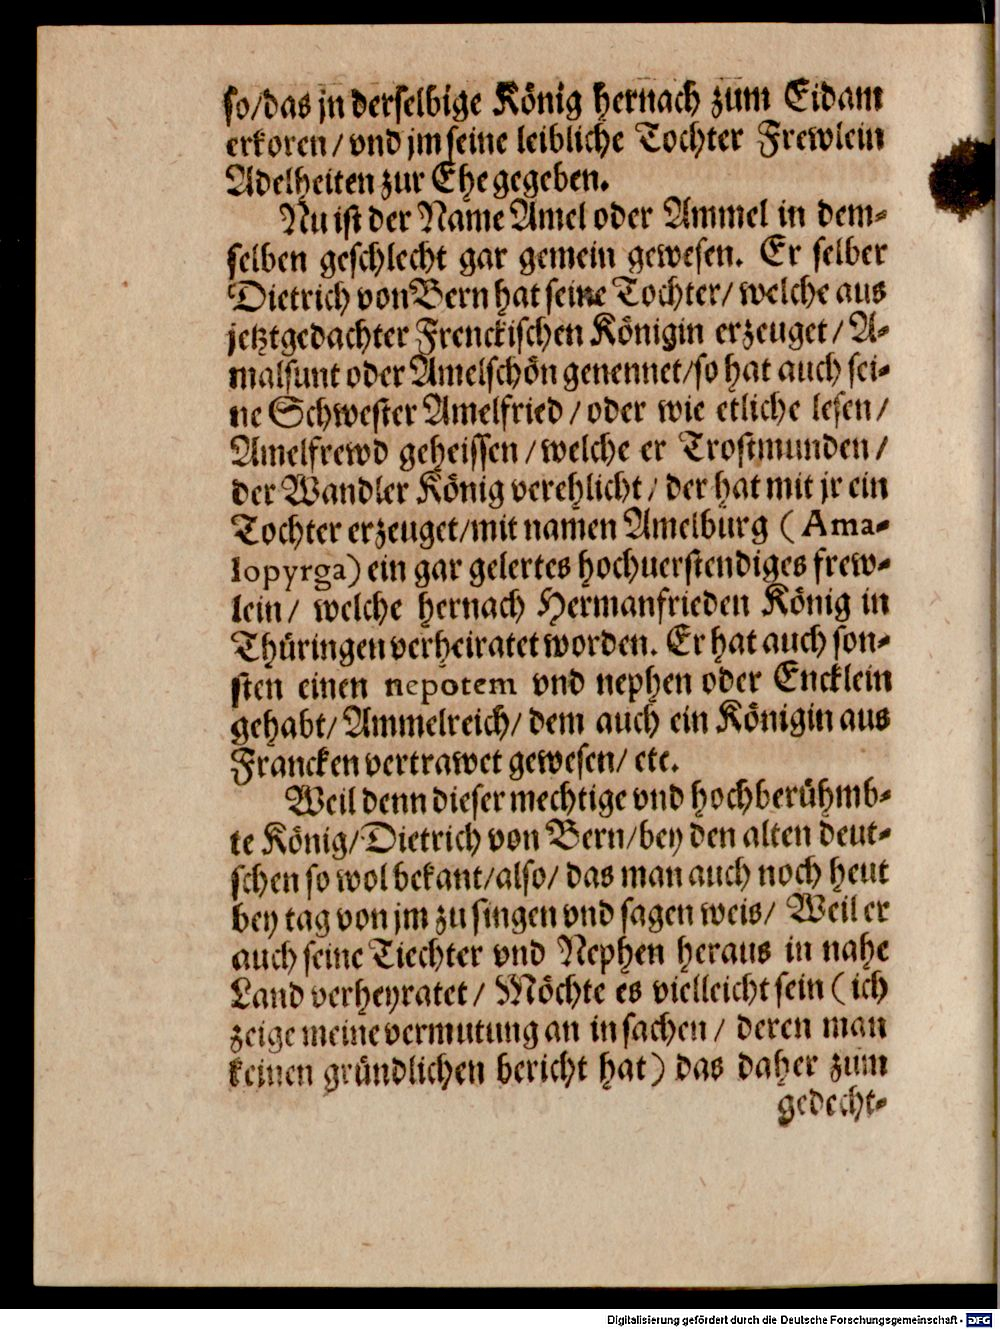 so/das jn derselbige König hernach zum Eidam
erkoren/ vnd jm seine leibliche Tochter Frewlein
Adelheiten zur Ehe gegeben.
Nu ist der Name Amel oder Ammel in dem-
selben geschlecht gar gemein gewesen. Er selber
Dietrich von Bern hat seine Tochter/ welche aus
jetztgedachter Frenckischen Königin erzeuget/ A-
malsunt oder Amelschön genennet/so hat auch sei-
ne Schwester Amelfried/ oder wie etliche lesen/
Amelfrewd geheissen/ welche er Trostmunden/
der Wandler König verehlicht/ der hat mit jr ein
Tochter erzeuget/mit namen Amelburg (Ama-
lopyrga) ein gar gelertes hochuerstendiges frew-
lein/ welche hernach Hermanfrieden König in
Thüringen verheiratet worden. Er hat auch son-
sten einen nepotem vnd nephen oder Encklein
gehabt/ Ammelreich/ dem auch ein Königin aus
Francken vertrawet gewesen/ etc.
Weil denn dieser mechtige vnd hochberühmb-
te König/Dietrich von Bern/bey den alten deut-
schen so wol bekant/also/ das man auch noch heut
bey tag von jm zu singen vnd sagen weis/ Weil er
auch seine Tiechter vnd Nephen heraus in nahe
Land verheyratet/ Möchte es vielleicht sein (ich
zeige meine vermutung an in sachen/ deren man
keinen gründlichen bericht hat) das daher zum
gedecht-
Digitalisierung gefördert durch die Deutsche Forschungsgemeinschaft - DFG